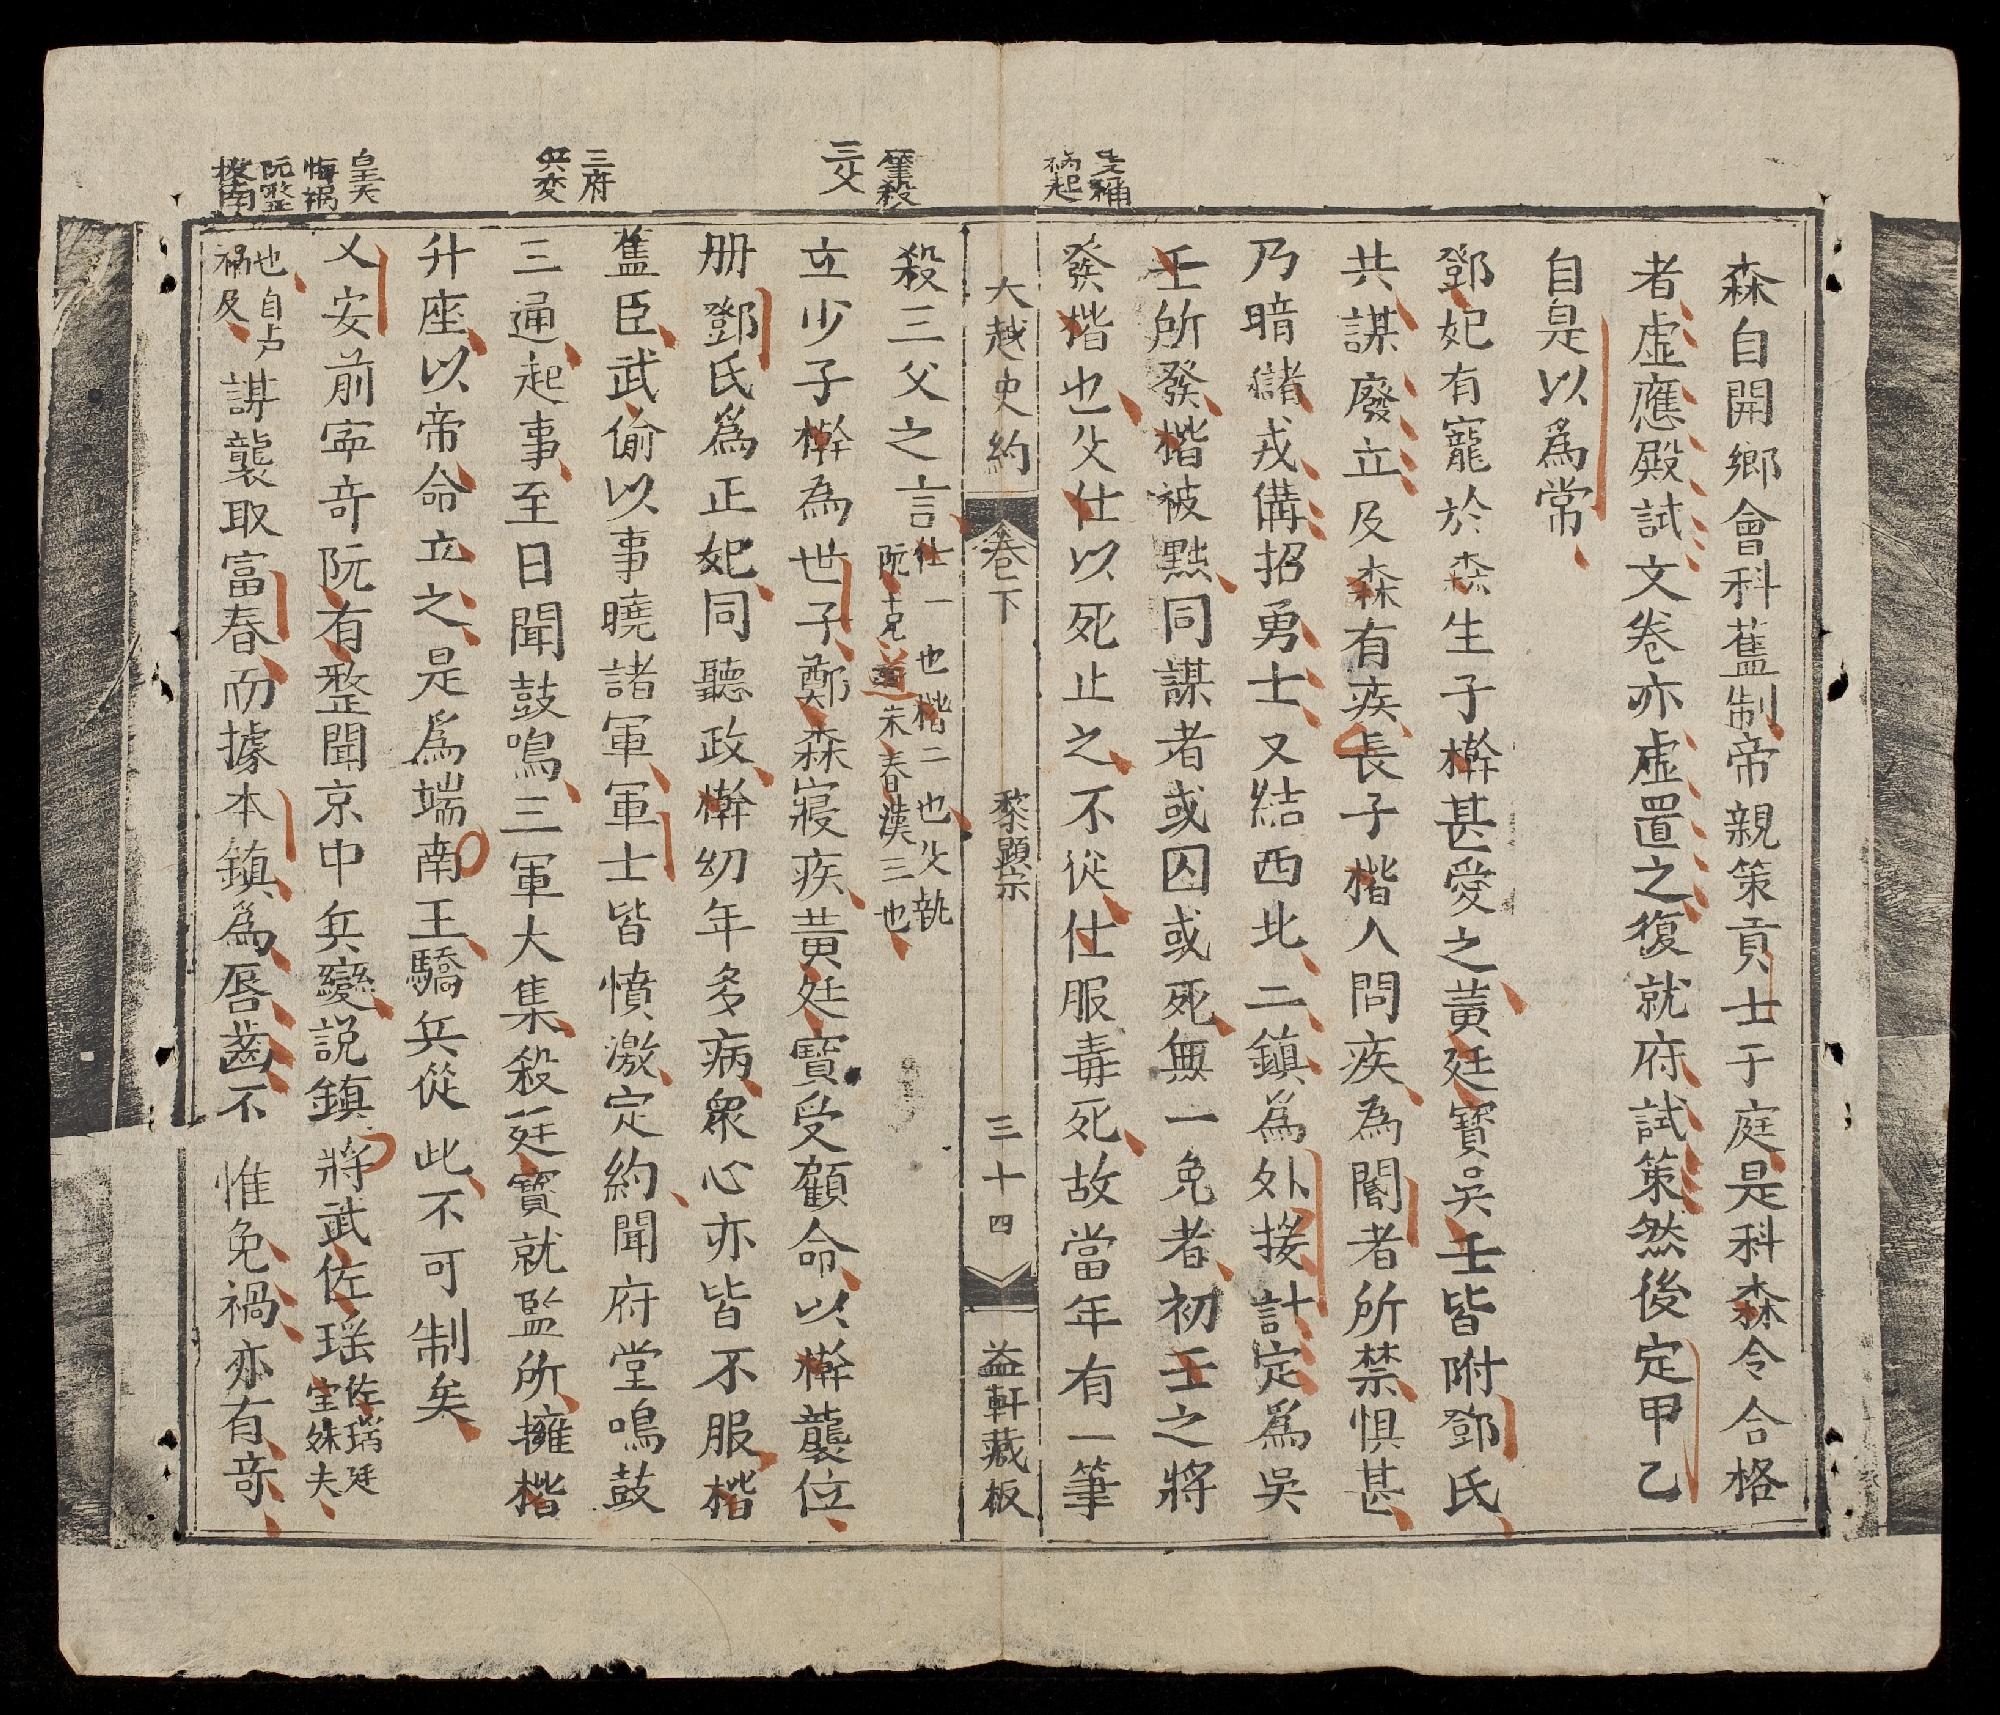 森自開鄉會科舊制帝親策貢士于庭是科森令合格
者虛應殿試文卷亦虛置之復就府試策然後定甲乙
自是以為常
鄧妃有寵於森生子檊甚愛之黃廷寶吳壬皆附鄧氏
共謀廢立及森有疾長子楷入問疾為閽者所禁惧甚
乃暗儲戎備招勇士又結西北二鎮為外援計定為吳
壬所發楷被黜同謀者或囚或死無一免者初壬之將
發楷也父仕以死止之不從仕服毒死故當年有一筆
禍起
大越史約
卷下
黎顯宗
三十四
益軒藏板
殺三父之言
仕一也楷二也父執
阮克遵朱春漢三也
立少子檊為世子鄭森寢疾黃廷寶受顧命以檊襲位
册鄧氏為正妃同聽政檊幼年多病衆心亦皆不服楷
舊臣武偷以事曉諸軍軍士皆憤激定約聞府堂鳴鼓
三通起事至日聞鼓鳴三軍大集殺廷寶就監所擁楷
升座以帝命立之是為端南王驕兵從此不可制矣
乂安前寜竒阮有整聞京中兵變説鎮將武佐瑶
佐瑶廷
宝妹夫
也自占
禍及
謀襲取富春而據本鎮為唇齒不惟免禍亦有竒
筆殺
三父
三府
兵変
皇天
悔禍
阮整